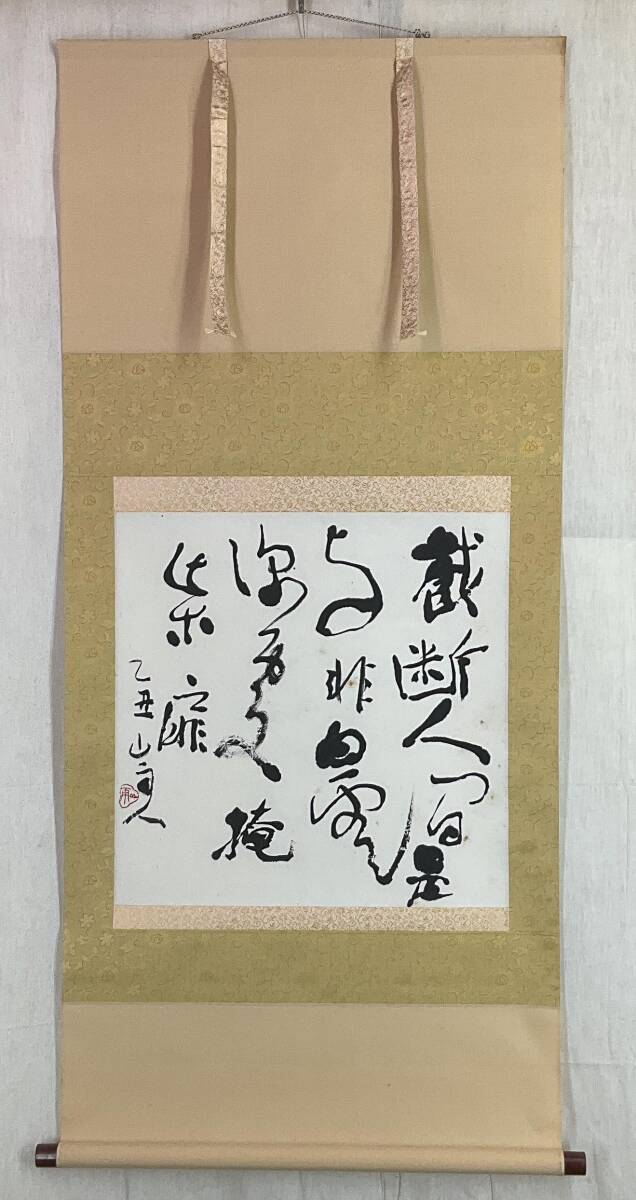 截断人間是
与非白雲
深處掩
柴扉
乙丑山主人